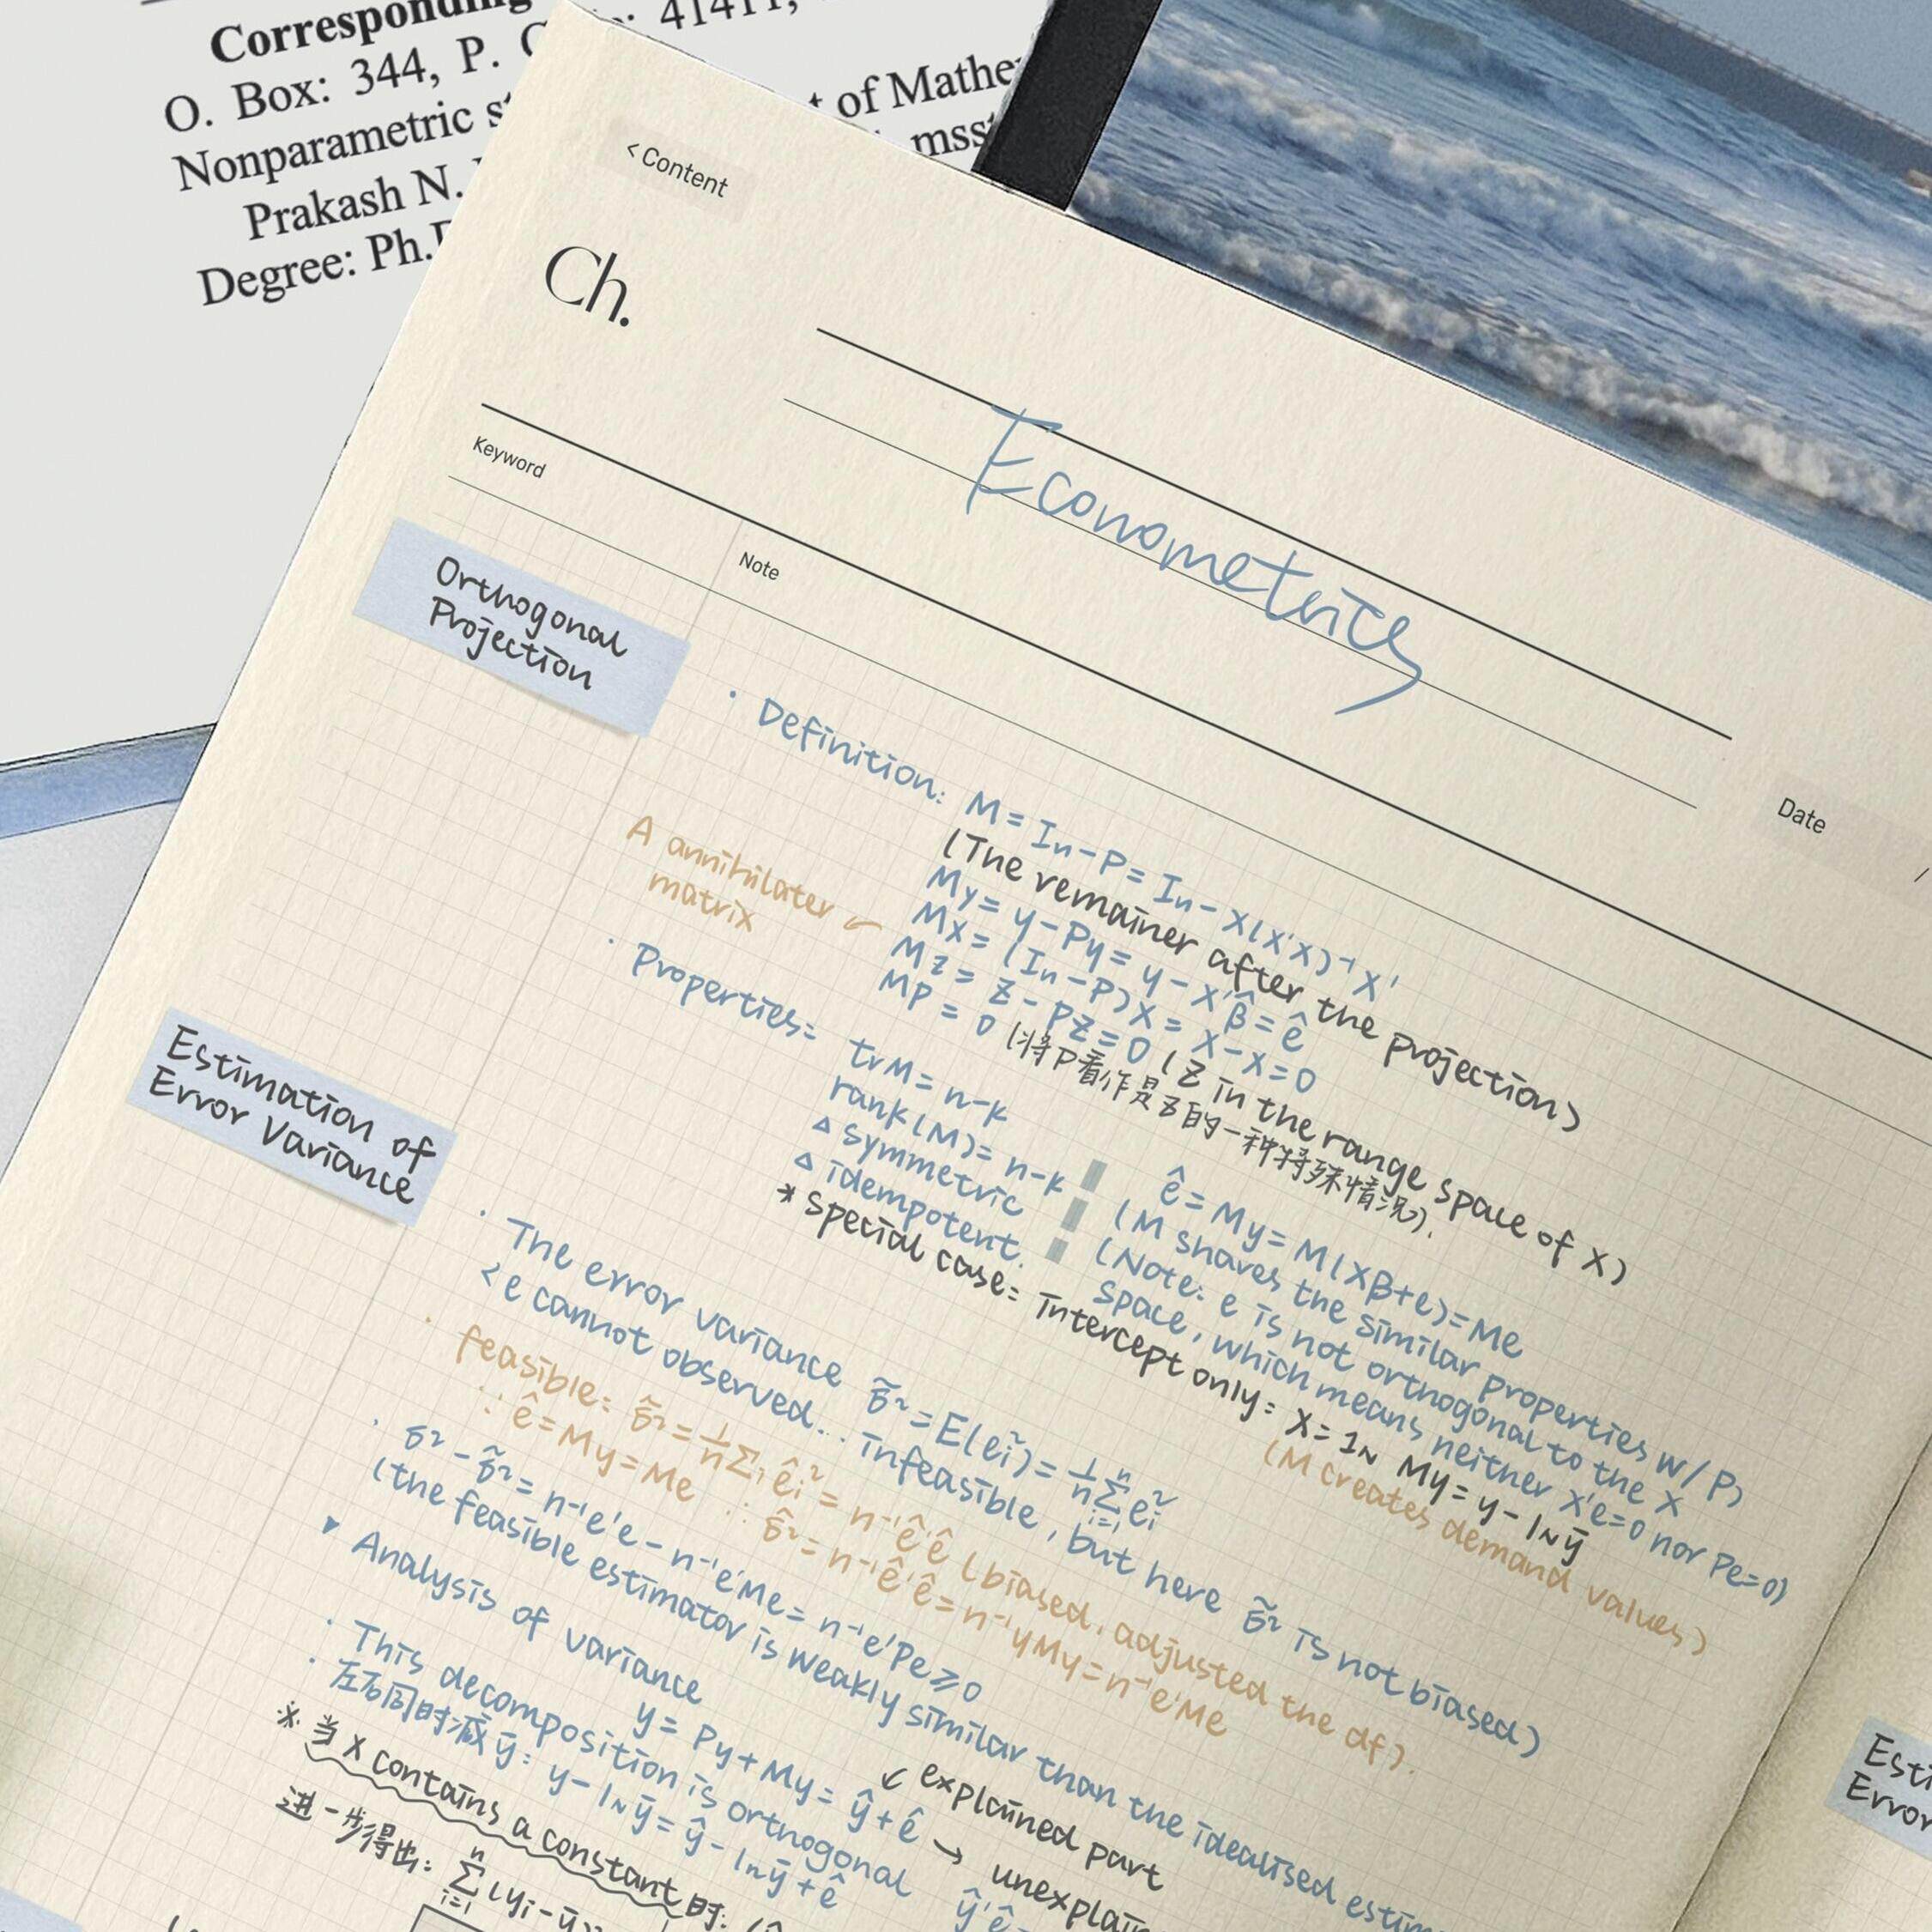 Corresponding
O. Box: 344, P.
41411,
Nonparametric
of Mathe
Prakash N.
mss
Degree: Ph.
< Content
Ch.
Econometrics
Keyword
Note
Date
/
Orthogonal
Projection
· Definition: M = In - P = In - X(X'X)⁻¹X'
(The remainer after the projection)
My = y - Py = y - X'β̂ = ê
A annihilater
matrix
MX = (In - P)X = X - X = 0
MZ = Z - PZ = 0 (Z in the range space of X)
MP = 0 (将P看作是Z的一种特殊情况).
· Properties: trM = n-k
rank(M) = n-k
△ symmetric
△ idempotent.
ê = My = M(Xβ+e) = Me
(M shares the similar properties w/ P)
(Note: e is not orthogonal to the X
space, which means neither X'e=0 nor Pe=0)
* Special case: intercept only: X = 1n My = y - 1nȳ
(M creates demand values)
Estimation of
Error Variance
· The error variance σ̃² = E(ei²) = 1/n Σ_{i=1}^{n} ei²
< e cannot observed... infeasible, but here σ̃² is not biased)
· feasible: σ̃² = 1/n Σi êi² = n⁻¹ê'ê (biased, adjusted the df).
∵ ê = My = Me ∴ σ̂² = n⁻¹ê'ê = n⁻¹yMy = n⁻¹e'Me
· σ² - σ̃² = n⁻¹e'e - n⁻¹e'Me = n⁻¹e'Pe ≥ 0
(the feasible estimator is weakly similar than the idealised
▾ Analysis of variance
y = Py + My = ŷ + ê
↙ explained part
→
· This decomposition is orthogonal
ŷ'ê
· 左右同时减ȳ: y - 1nȳ = ŷ - 1nȳ + ê
※ 当 X contains a constant 时:
进一步得出: Σ_{i=1}^{n} (yi - ȳ)
Error